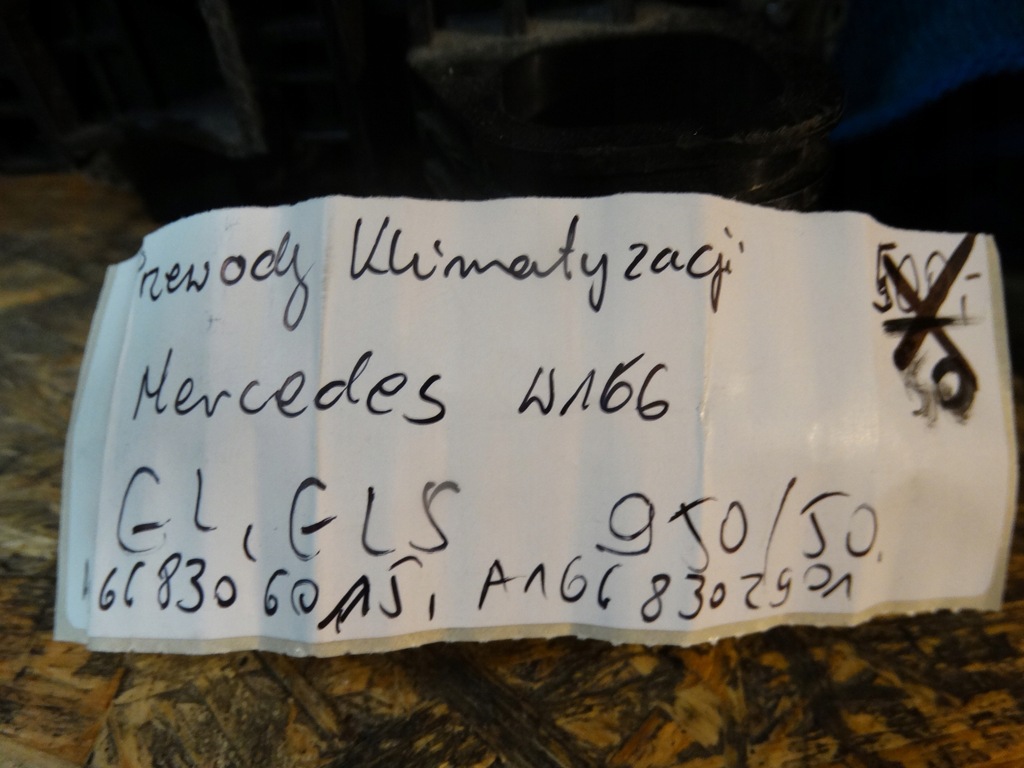 Przewody Klimatyzacji
500,-
Mercedes W166
GL, GLS 950/50
A1668306015, A1668302901